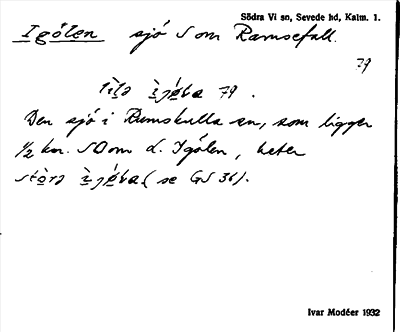 Södra Vi sn, Sevede hd, Kalm. l.
Igölen sjö S om Ramsefall.
79
79.
Den sjö i Rumskulla sn, som ligger
1/2 km. SO om L. Igölen, heter
(se GS 36).
Ivar Modéer 1932